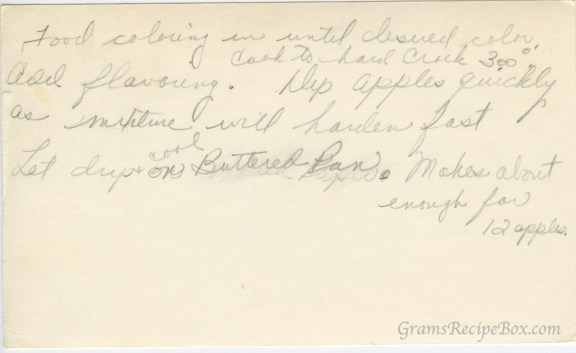 Food coloring in until desired color.
Cook to hard Crack 300°.
Add flavouring. Dip apples quickly
as mixture will harden fast
cool
Let drip + on Buttered Pan. Makes about
enough for
12 apples.
GramsRecipeBox.com